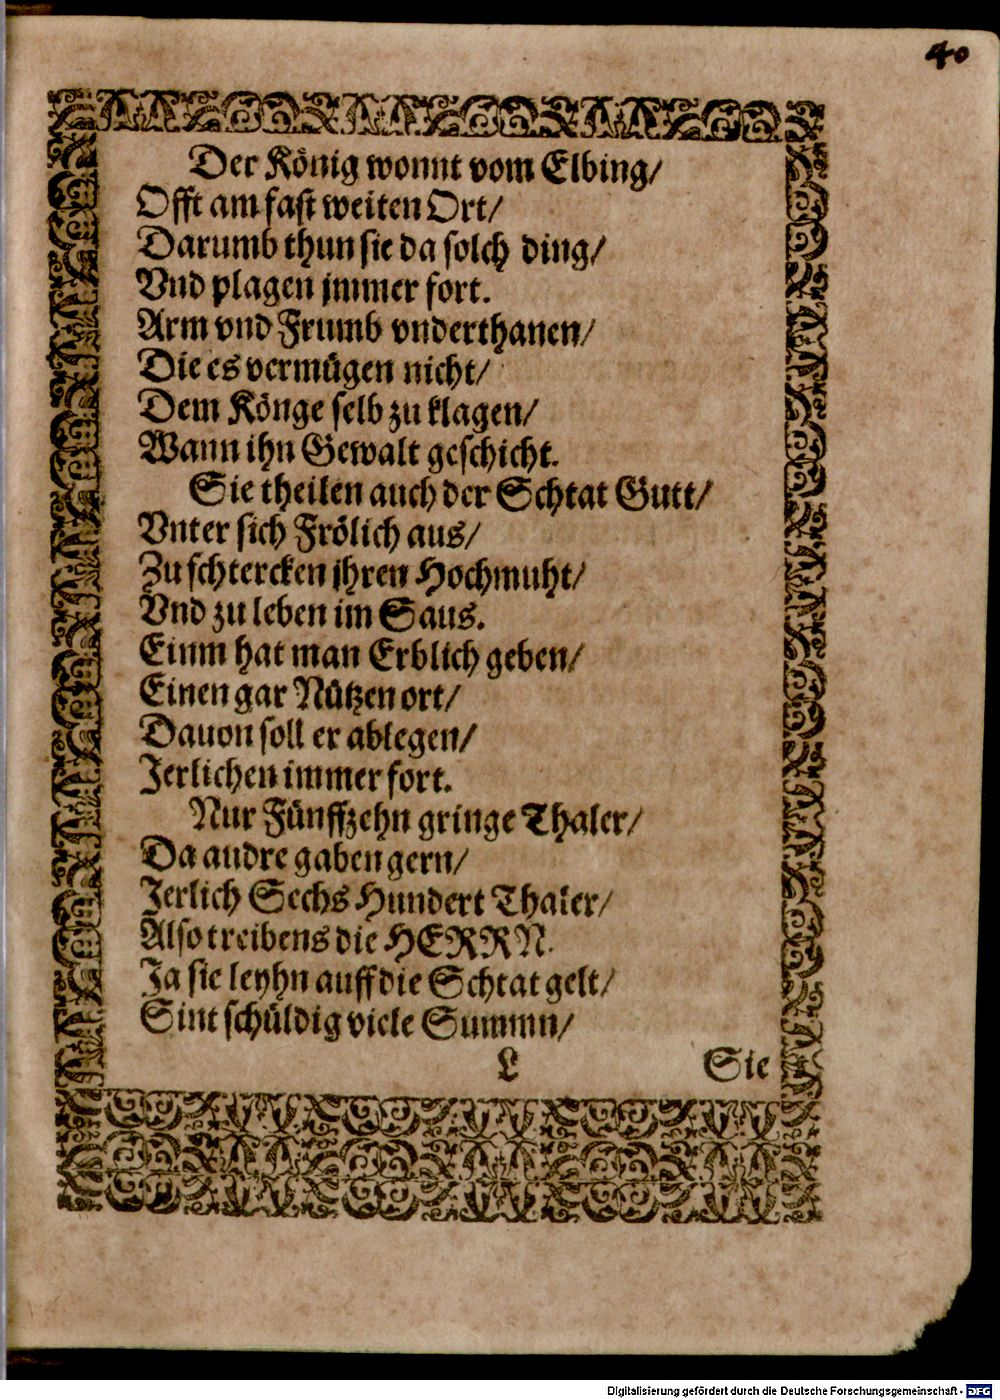 40
Der König wonnt vom Elbing/
Offt am fast weiten Ort/
Darumb thun sie da solch ding/
Vnd plagen jmmer fort.
Arm vnd Frumb vnderthanen/
Die es vermügen nicht/
Dem Könge selb zu klagen/
Wann ihn Gewalt geschicht.
Sie theilen auch der Schtat Gutt/
Vnter sich Frölich aus/
Zu schtercken jhren Hochmuht/
Vnd zu leben im Saus.
Einm hat man Erblich geben/
Einen gar Nützen ort/
Dauon soll er ablegen/
Jerlichen immer fort.
Nur Fünffzehn gringe Thaler/
Da andre gaben gern/
Jerlich Sechs Hundert Thaler/
Also treibens die HERRN.
Ja sie leyhn auff die Schtat gelt/
Sint schüldig viele Summn/
L Sie
Digitalisierung gefördert durch die Deutsche Forschungsgemeinschaft - DFG